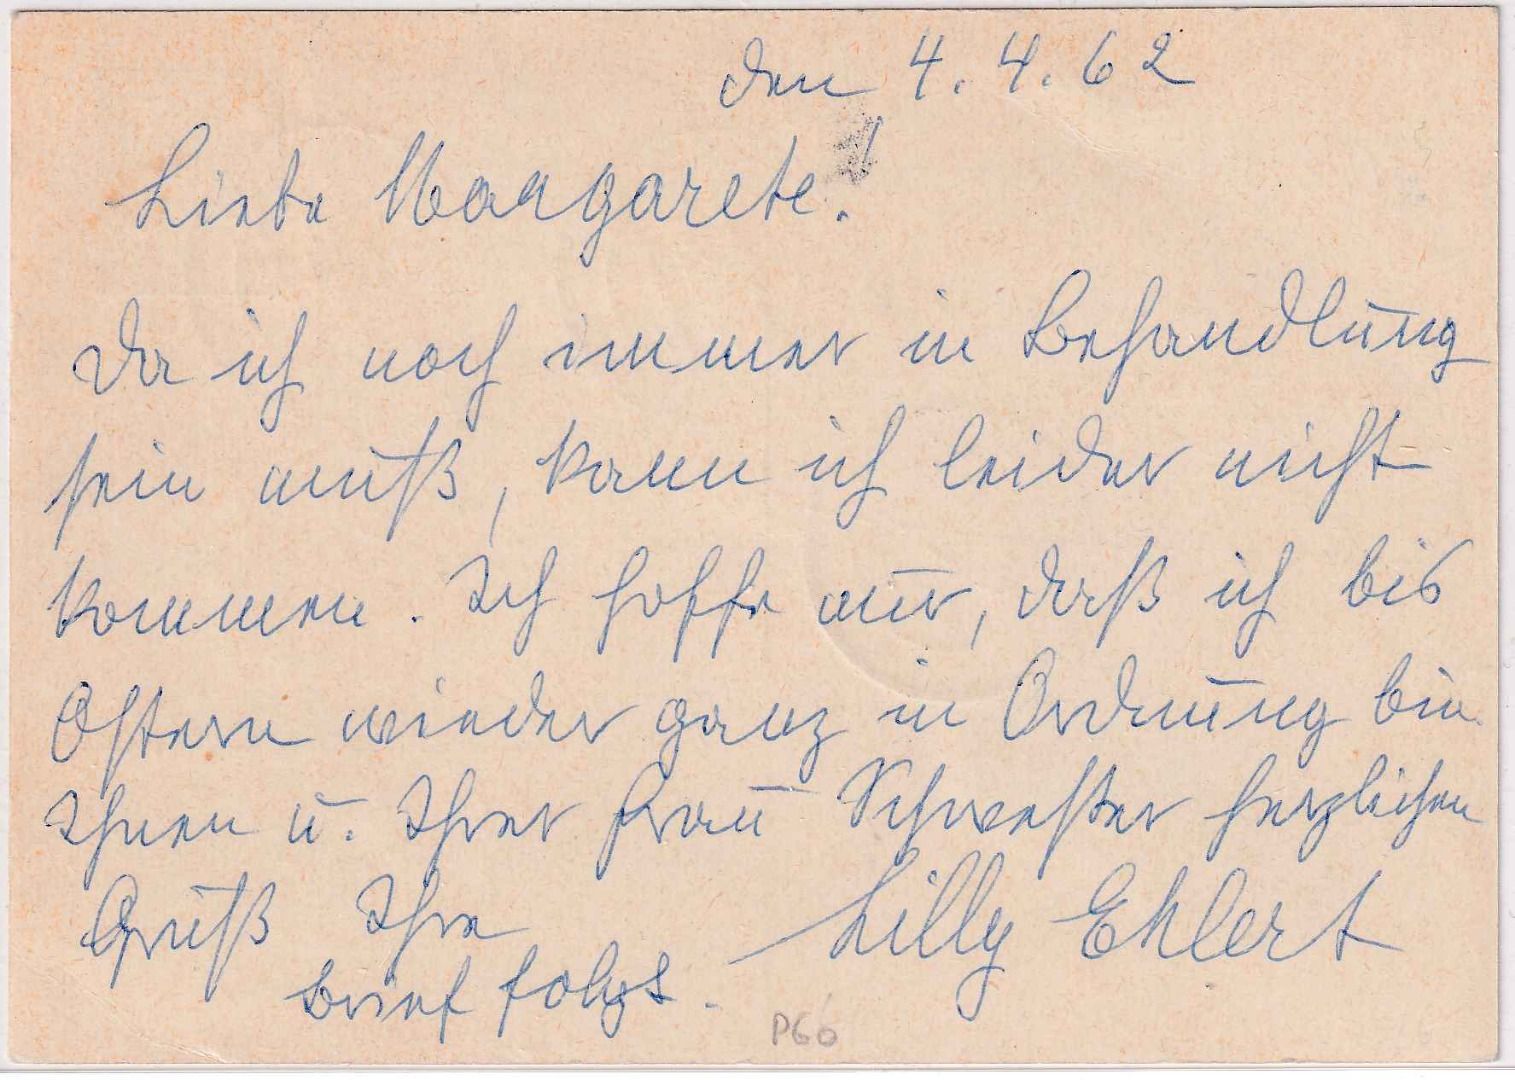 den 4.4.62
Liebe Margarete!
Da ich noch immer in Behandlung
sein muß, kann ich leider nicht
kommen. Ich hoffe nur, daß ich bis
Ostern wieder ganz in Ordnung bin.
Ihnen u. Ihrer Frau Schwester herzlichen
Gruß Ihre Lilly Ehlert
Brief folgt.
P60